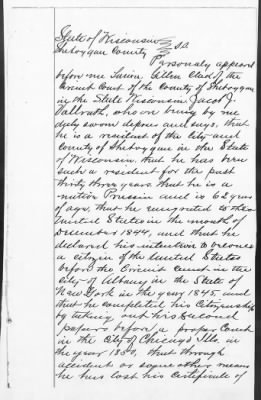 State of Wisconsin } S.S.
Sheboygan County }
Personaly appeared
before me Allen Clerk of the
Circuit Court of the County of Sheboygan
in the State Wisconsin Jacob J.
Vollrath, who on being by me
duly sworn depose and says, that
he is a resident of the City and
County of Sheboygan in the State
of Wisconsin, that he has been
such a resident for the past
thirty three years that he is a
native Prussian and is 62 years
of age, that he emigrated to the
United States in the month of
December 1844, and that he
declared his intention to become
a citizen of the United States
before the Circuit Court in the
City of Albany in the State of
New York in the year 1845, and
that he completed his Citizenship
by taking out his second
papers before a proper Court
in the City of Chicago Ills. in
the year 1850, that through
accident or some other means
he has lost his Certificate of